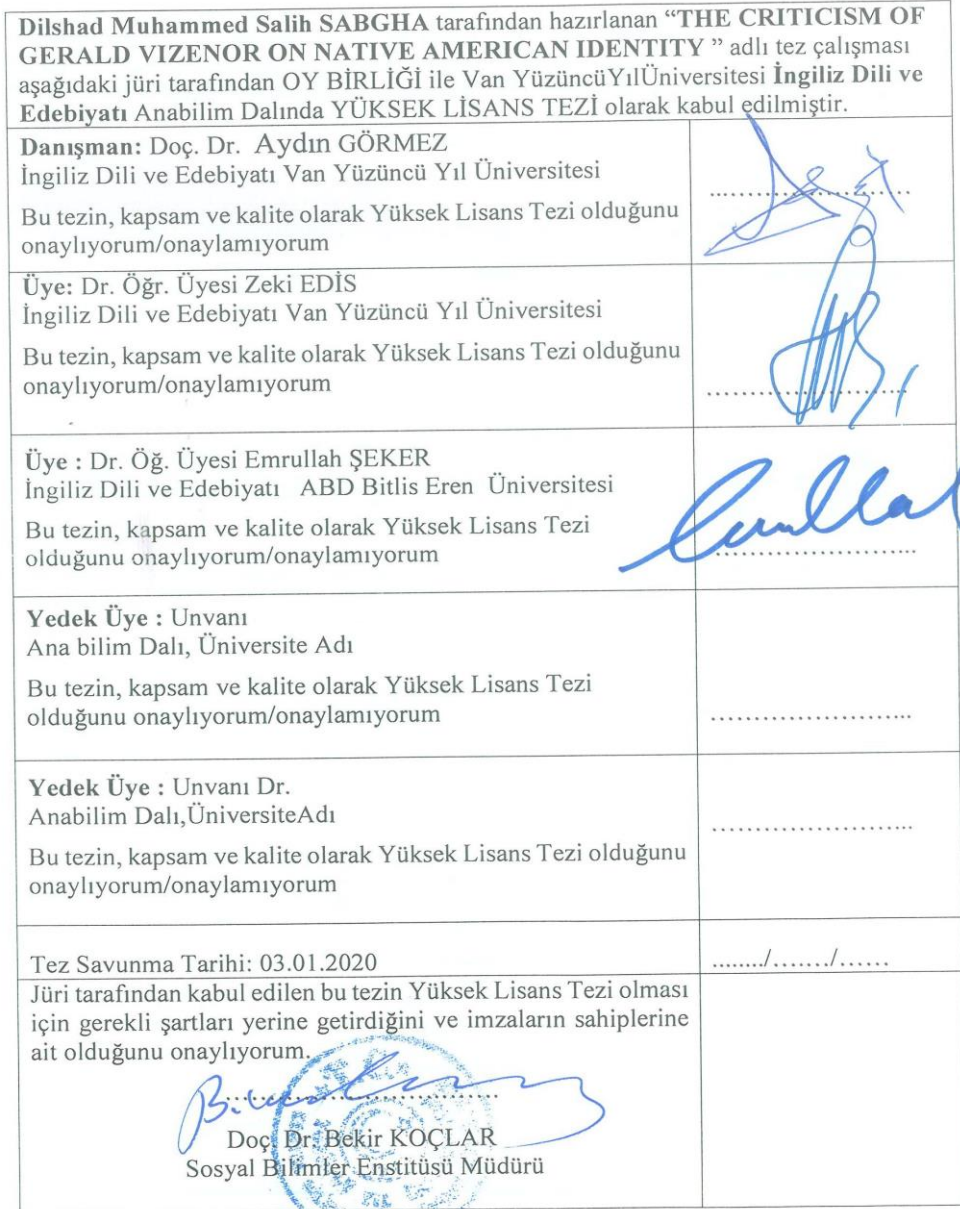 Dilshad Muhammed Salih SABGHA tarafından hazırlanan “THE CRITICISM OF
GERALD VIZENOR ON NATIVE AMERICAN IDENTITY ” adlı tez çalışması
aşağıdaki jüri tarafından OY BİRLİĞİ ile Van YüzüncüYılÜniversitesi İngiliz Dili ve
Edebiyatı Anabilim Dalında YÜKSEK LİSANS TEZİ olarak kabul edilmiştir.
Danışman: Doç. Dr. Aydın GÖRMEZ
İngiliz Dili ve Edebiyatı Van Yüzüncü Yıl Üniversitesi
Bu tezin, kapsam ve kalite olarak Yüksek Lisans Tezi olduğunu
onaylıyorum/onaylamıyorum
......................
Üye: Dr. Öğr. Üyesi Zeki EDİS
İngiliz Dili ve Edebiyatı Van Yüzüncü Yıl Üniversitesi
Bu tezin, kapsam ve kalite olarak Yüksek Lisans Tezi olduğunu
onaylıyorum/onaylamıyorum
......................
Üye : Dr. Öğ. Üyesi Emrullah ŞEKER
İngiliz Dili ve Edebiyatı ABD Bitlis Eren Üniversitesi
Bu tezin, kapsam ve kalite olarak Yüksek Lisans Tezi
olduğunu onaylıyorum/onaylamıyorum
......................
Yedek Üye : Unvanı
Ana bilim Dalı, Üniversite Adı
Bu tezin, kapsam ve kalite olarak Yüksek Lisans Tezi
olduğunu onaylıyorum/onaylamıyorum
......................
Yedek Üye : Unvanı Dr.
Anabilim Dalı,ÜniversiteAdı
......................
Bu tezin, kapsam ve kalite olarak Yüksek Lisans Tezi olduğunu
onaylıyorum/onaylamıyorum
Tez Savunma Tarihi: 03.01.2020
......../......./......
Jüri tarafından kabul edilen bu tezin Yüksek Lisans Tezi olması
için gerekli şartları yerine getirdiğini ve imzaların sahiplerine
ait olduğunu onaylıyorum.
..............................
Doç. Dr. Bekir KOÇLAR
Sosyal Bilimler Enstitüsü Müdürü